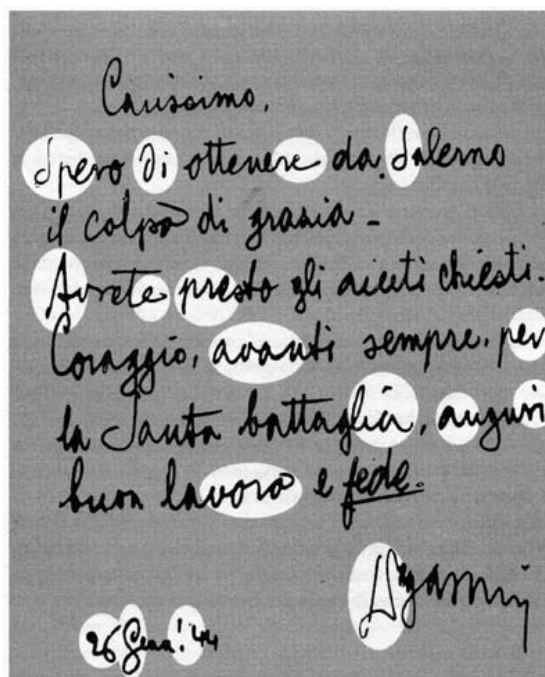 Carissimo,
Spero di ottenere da Salerno
il colpo di grazia -
Avrete presto gli aiuti chiesti.
Coraggio, avanti sempre, per
la Santa battaglia, auguri
buon lavoro e fede.
26 Genn! '44